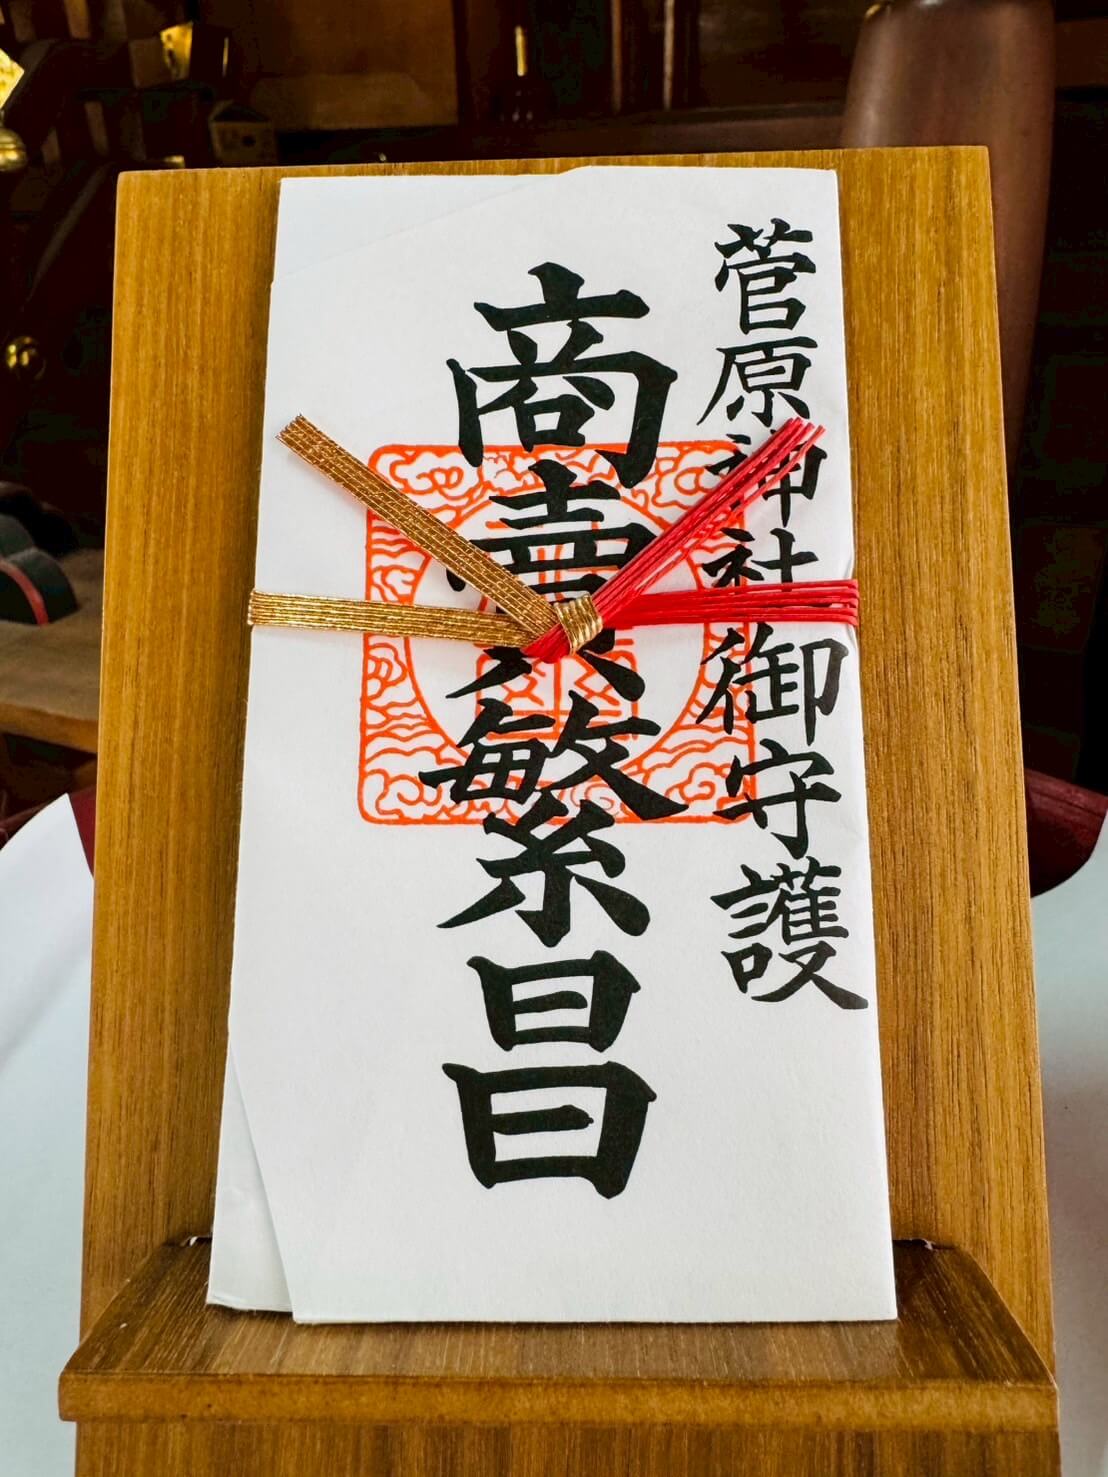 菅原神社御守護
商賣繁昌